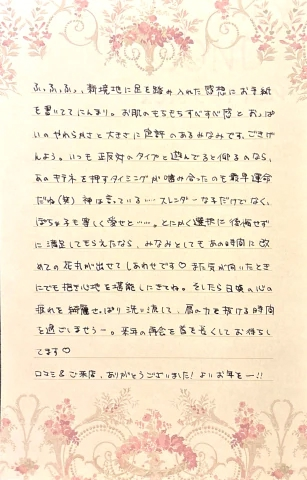 ふ、ふ、ふっ、新境地に足を踏み入れた感想にお手紙
を書いててにんまり。お肌のもちもちすべすべ感とおっぱ
いのやわらかさと大きさに定評のあるみなみです、ごきげ
んよう。いつも正反対のタイプと遊んでると仰るのなら、
あの日予約を押すタイミングが噛み合ったのも最早運命
だね(笑) 神は言っている…スレンダーなるだけでなく、
ぽちゃ子も等しく愛せと……。とにかく選択に後悔せず
に満足してもらえたなら、みなみとしてもあの時間に改
めての花丸が出せてしあわせです♡また気が向いたとき
にでも抱き心地を堪能しにきてね。そしたら日頃の心の
疲れを綺麗さっぱり洗い流して、肩の力を抜ける時間
を過ごしませうー。来年の再会を首を長くしてお待ちし
てます♡
口コミ&ご来店、ありがとうございました!よいお年をー!!